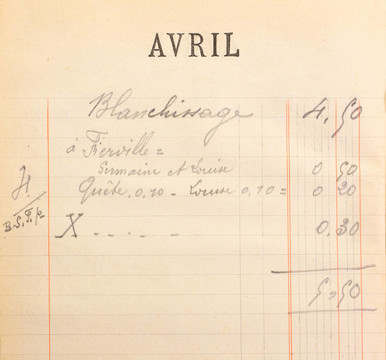 AVRIL
Blanchissage 4,50
à Fierville =
Germaine et Louise 0 50
Quête 0,10 - Louise 0,10 = 0 20
X - . - . - 0,30
5,50